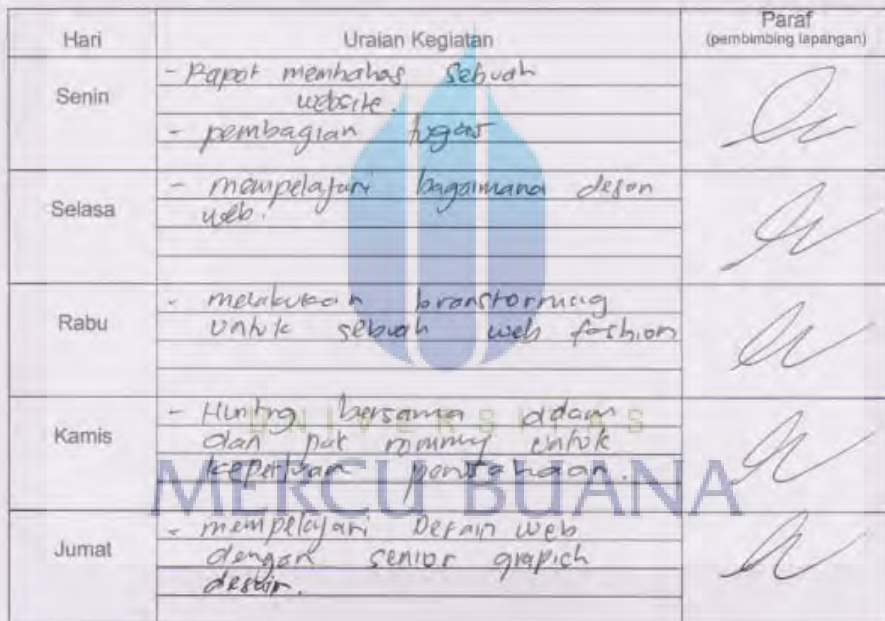 Hari Uraian Kegiatan Paraf
(pembimbing lapangan)
Senin
- Rapat membahas sebuah
website.
- pembagian tugas
Selasa
- mempelajari bagaimana desan
web.
Rabu
- melakukan branstorming
untuk sebuah web fashion
Kamis
- Hunting bersama adam
dan pak rommy untuk
keperluan perusahaan.
UNIVERSITAS
MERCU BUANA
Jumat
- mempelajari Desain web
dengan senior grapich
desain.